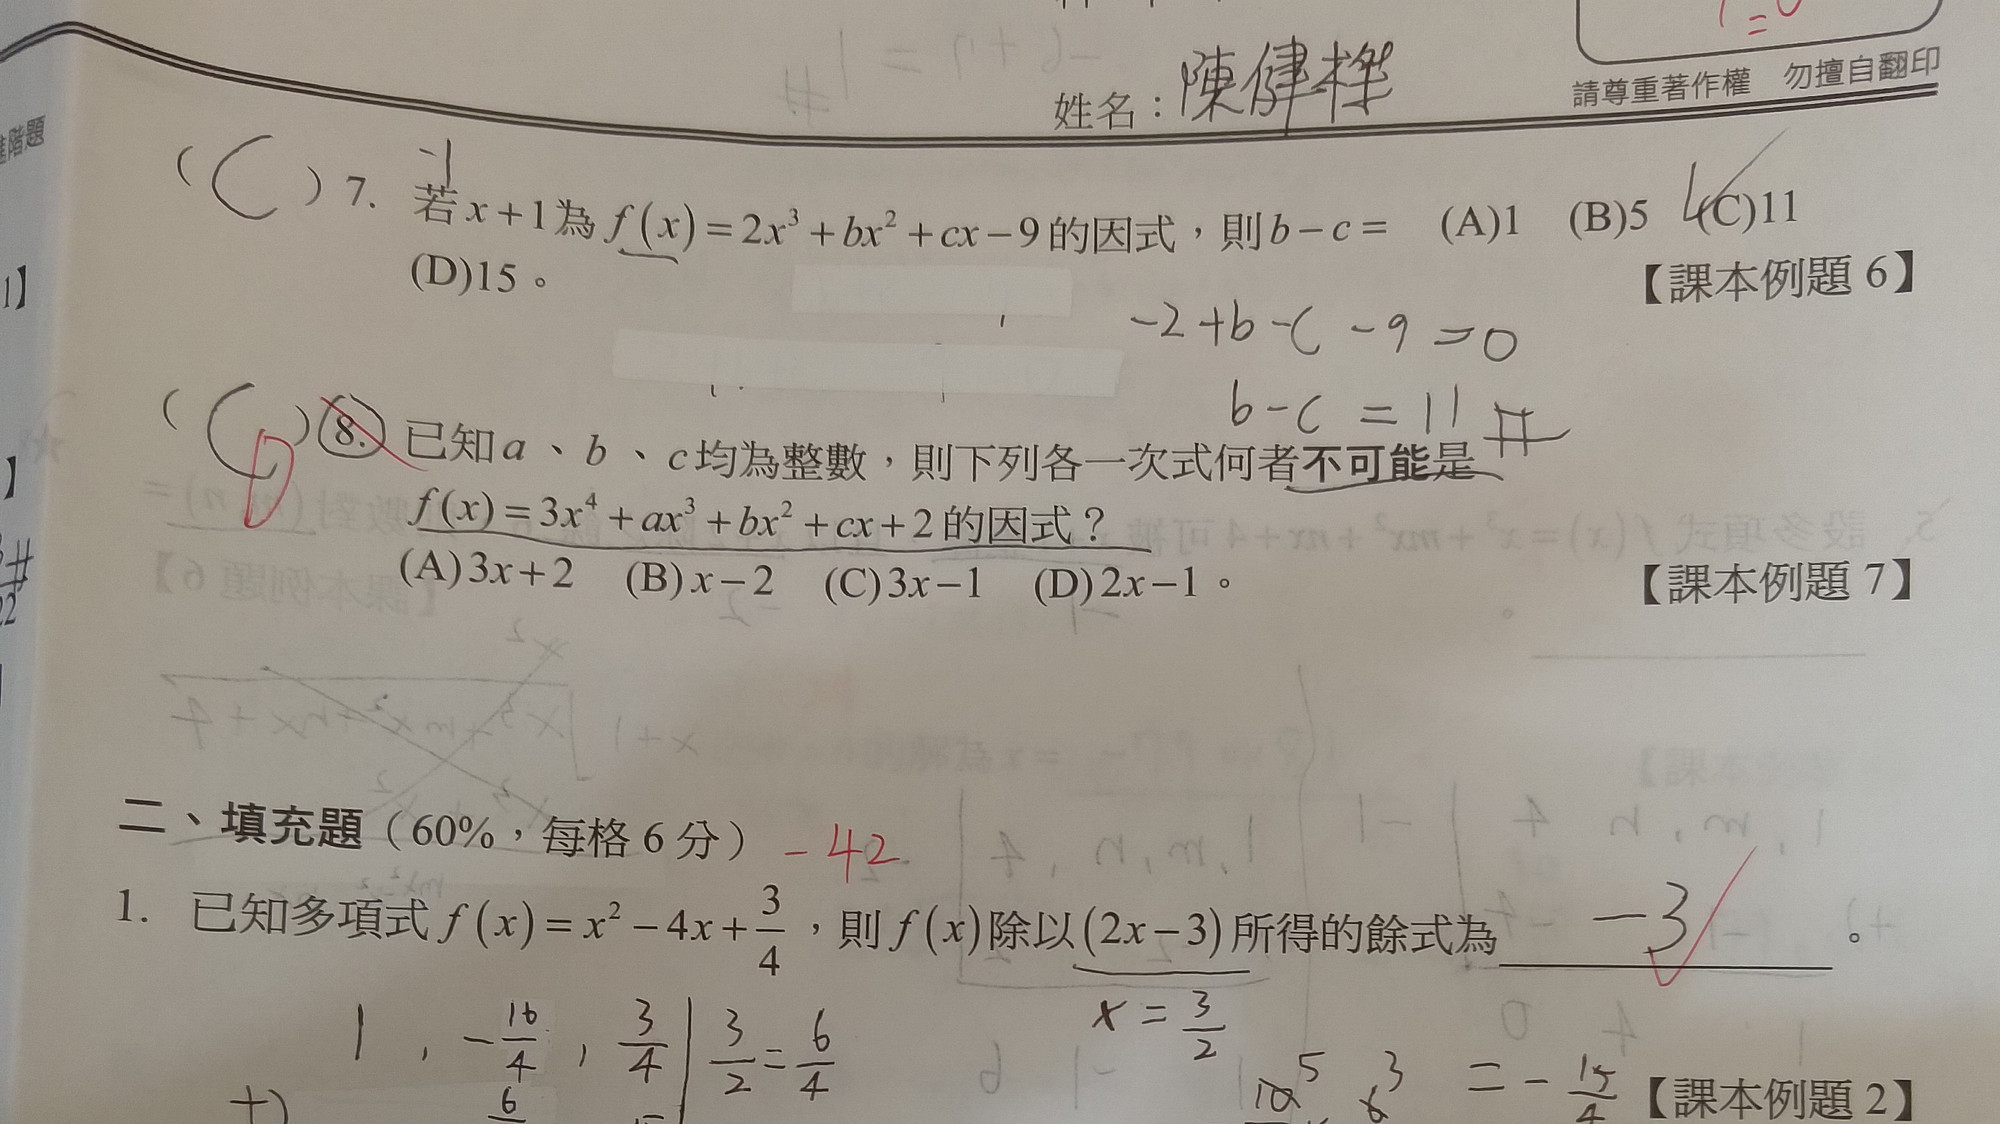 請尊重著作權 勿擅自翻印
姓名：陳健樑
進階題
(C) 7. 若x+1為f(x)=2x³+bx²+cx−9的因式，則b−c= (A)1 (B)5 (C)11
-1
(D)15。
【課本例題 6】
1】
-2+b-c-9=0
b-c=11 #
(C) 8. 已知a、b、c均為整數，則下列各一次式何者不可能是
D
f(x)=3x⁴+ax³+bx²+cx+2的因式？
(A)3x+2 (B)x−2 (C)3x−1 (D)2x−1。
【課本例題 7】
二、填充題（60%，每格6分） -42
1. 已知多項式f(x)=x²−4x+3/4，則f(x)除以(2x−3)所得的餘式為 -3 。
x=3/2
1, -16/4, 3/4 | 3/2=6/4
+) 6
5 3 =-15/4
【課本例題 2】